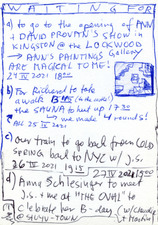 WAITING FOR
a) to go to the opening of ANN
+ DAVID PROVAN'S SHOW in
KINGSTON @ the LOCKWOOD
→ ANN'S PAINTINGS Gallery
ARE MAGICAL TO ME!
24 IV 2021 18
b) For Richard to take
a walk
the SAUNA to heat up 17
we made 4 rounds!
ALL 25 IV 2021
c) Our train to go back from COLD
SPRING back to NYC w/ J.S.
26 IV 2021 19 15
d) Anna Schlesinger to meet
J.S. + me at "THE OVAL" to
celebrate her B-day